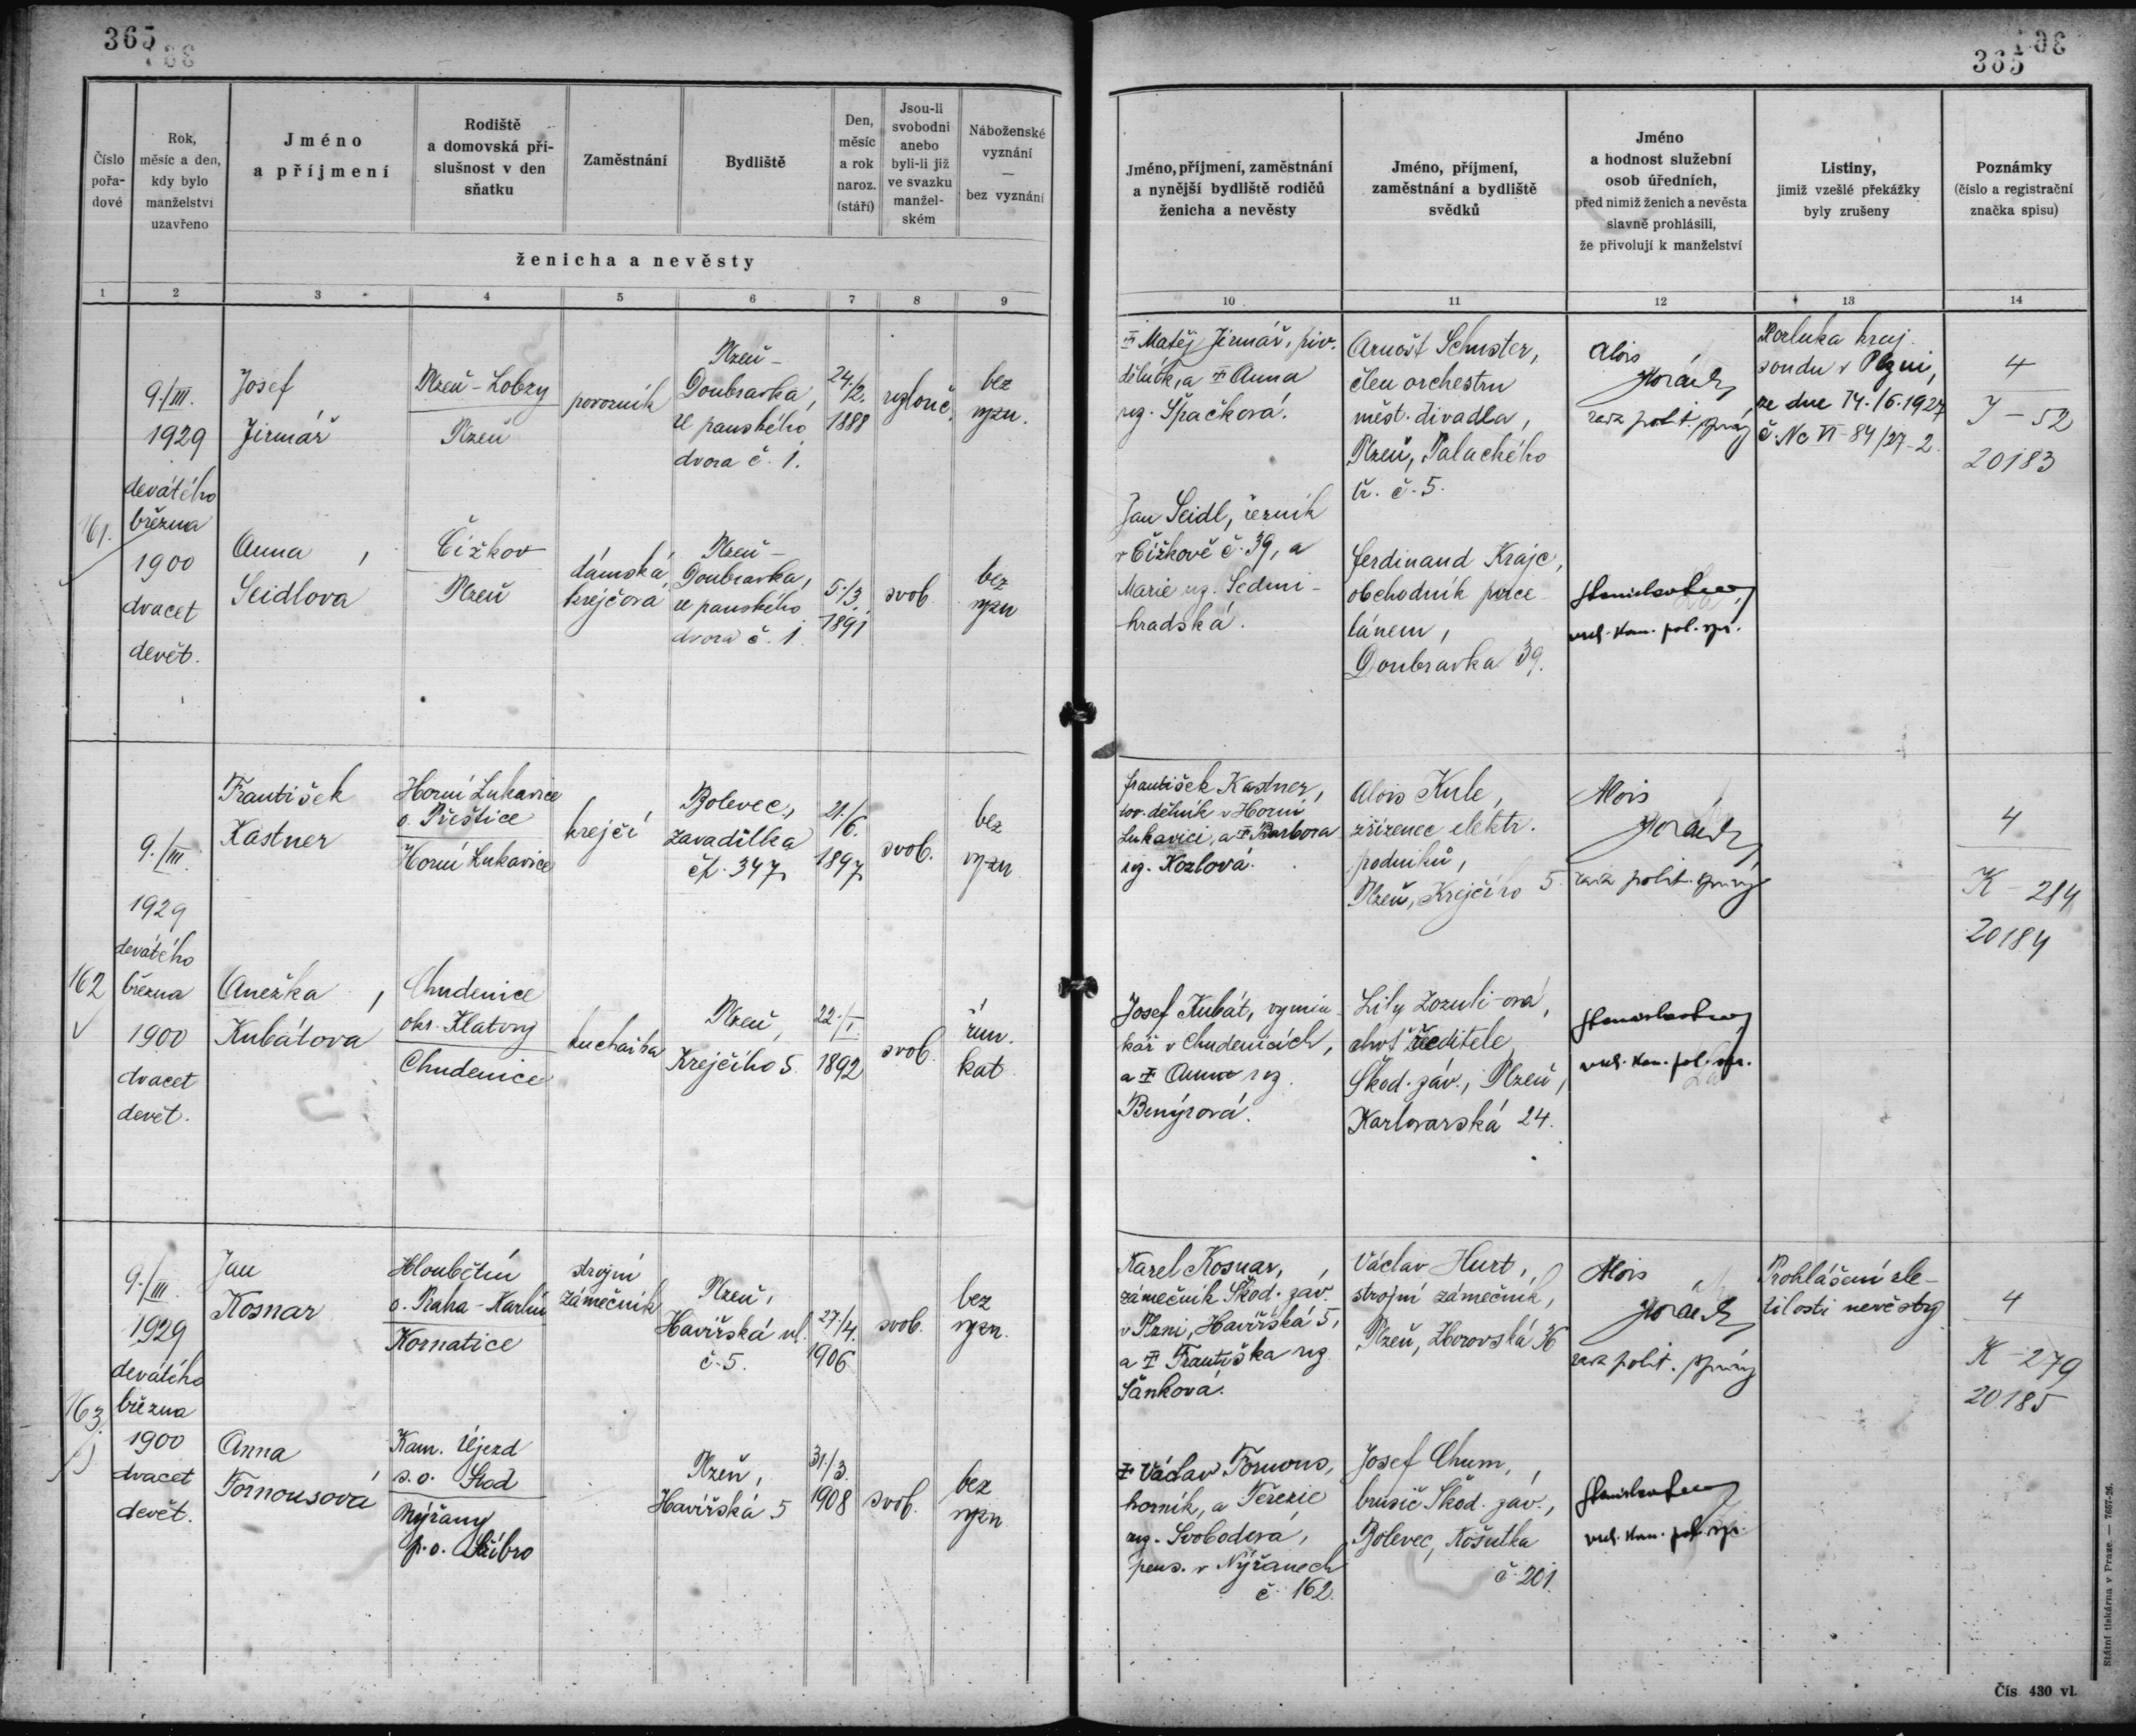 365
365
Číslo pořa- dové
Rok, měsíc a den, kdy bylo manželství uzavřeno
Jméno a příjmení
Rodiště a domovská pří- slušnost v den sňatku
Zaměstnání
Bydliště
Den, měsíc a rok naroz. (stáří)
Jsou-li svobodni anebo byli-li již ve svazku manžel- ském
Náboženské vyznání — bez vyznání
ženicha a nevěsty
Jméno, příjmení, zaměstnání a nynější bydliště rodičů ženicha a nevěsty
Jméno, příjmení, zaměstnání a bydliště svědků
Jméno a hodnost služební osob úředních, před nimiž ženich a nevěsta slavně prohlásili, že přivolují k manželství
Listiny, jimiž vzešlé překážky byly zrušeny
Poznámky (číslo a registrační značka spisu)
1 2 3 4 5 6 7 8 9 10 11 12 13 14
161.
9./III.
1929
devátého
března
1900
dvacet
devět.
Josef
Jirmář
Plzeň - Lobzy
Plzeň
povozník
Plzeň -
Doubravka,
ve panského
dvora č. 1.
24./2.
1888
rozlouč.
bez
vyzn.
† Matěj Jirmář, piv.
dělník, a † Anna
roz. Špačková.
Arnošt Schuster,
člen orchestru
měst. divadla,
Plzeň, Palackého
tř. č. 5.
Alois
Horák
rada polit. správy
Rozluka kraj.
soudu v Plzni,
ze dne 14./6.1927
č. Nc VI - 84/27-2.
4
J - 52
20183
Anna
Seidlova
Čížkov
Plzeň
dámská
krejčová
Plzeň -
Doubravka,
ve panského
dvora č. 1.
5./3.
1891
svob.
bez
vyzn
Jan Seidl, řezník
v Čížkově č. 39, a
Marie roz. Sedmi-
hradská.
Ferdinand Krajc,
obchodník porce-
lánem,
Doubravka 39.
kan. pol. spr.
162
9./III.
1929
devátého
března
1900
dvacet
devět.
František
Kastner
Horní Lukavice
o. Přeštice
Horní Lukavice
krejčí
Bolevec,
Zavadilka
čp. 347
21./6.
1897
svob.
bez
vyzn
František Kastner,
tov. dělník v Horní
Lukavici, a † Barbora
roz. Kozlová.
Alois Kule,
zřízenec elektr.
podniků,
Plzeň, Krejčího 5.
Alois
Horák
rada polit. správy
4
K - 284
20184
Anežka
Kubátova
Chudenice
okr. Klatovy
Chudenice
kuchařka
Plzeň,
Krejčího 5.
22./I.
1892
svob.
řím.
kat
Josef Kubát, výmin-
kář v Chudenicích,
a † Anna roz.
Benýrová.
Lily Zozuli-ová,
choť ředitele
Škod. záv., Plzeň,
Karlovarská 24.
kan. pol. spr.
163.
9./III.
1929
devátého
března
1900
dvacet
devět.
Jan
Kosnar
Hloubětín
o. Praha - Karlín
Kornatice
strojní
zámečník
Plzeň,
Havířská ul.
č. 5.
27./4.
1906
svob.
bez
vyzn.
Karel Kosnar,
zámečník Škod. záv.
v Plzni, Havířská 5,
a † Františka roz.
Šánková.
Václav Hurt,
strojní zámečník,
Plzeň, Zborovská 36
Alois
Horák
rada polit. správy
Prohlášení zle-
tilosti nevěsty
4
K - 279
20185
Anna
Tomousová
Kam. Újezd
s. o. Stod
Nýřany
p. o. Stříbro
Plzeň,
Havířská 5
31./3.
1908
svob.
bez
vyzn
† Václav Tomous,
horník, a Terezie
roz. Svobodová,
pens. v Nýřanech
č. 162.
Josef Chum,
brusič Škod. záv.,
Bolevec, Košutka
č. 201.
kan. pol. spr.
Státní tiskárna v Praze. — 7657-26.
Čís. 430 vl.